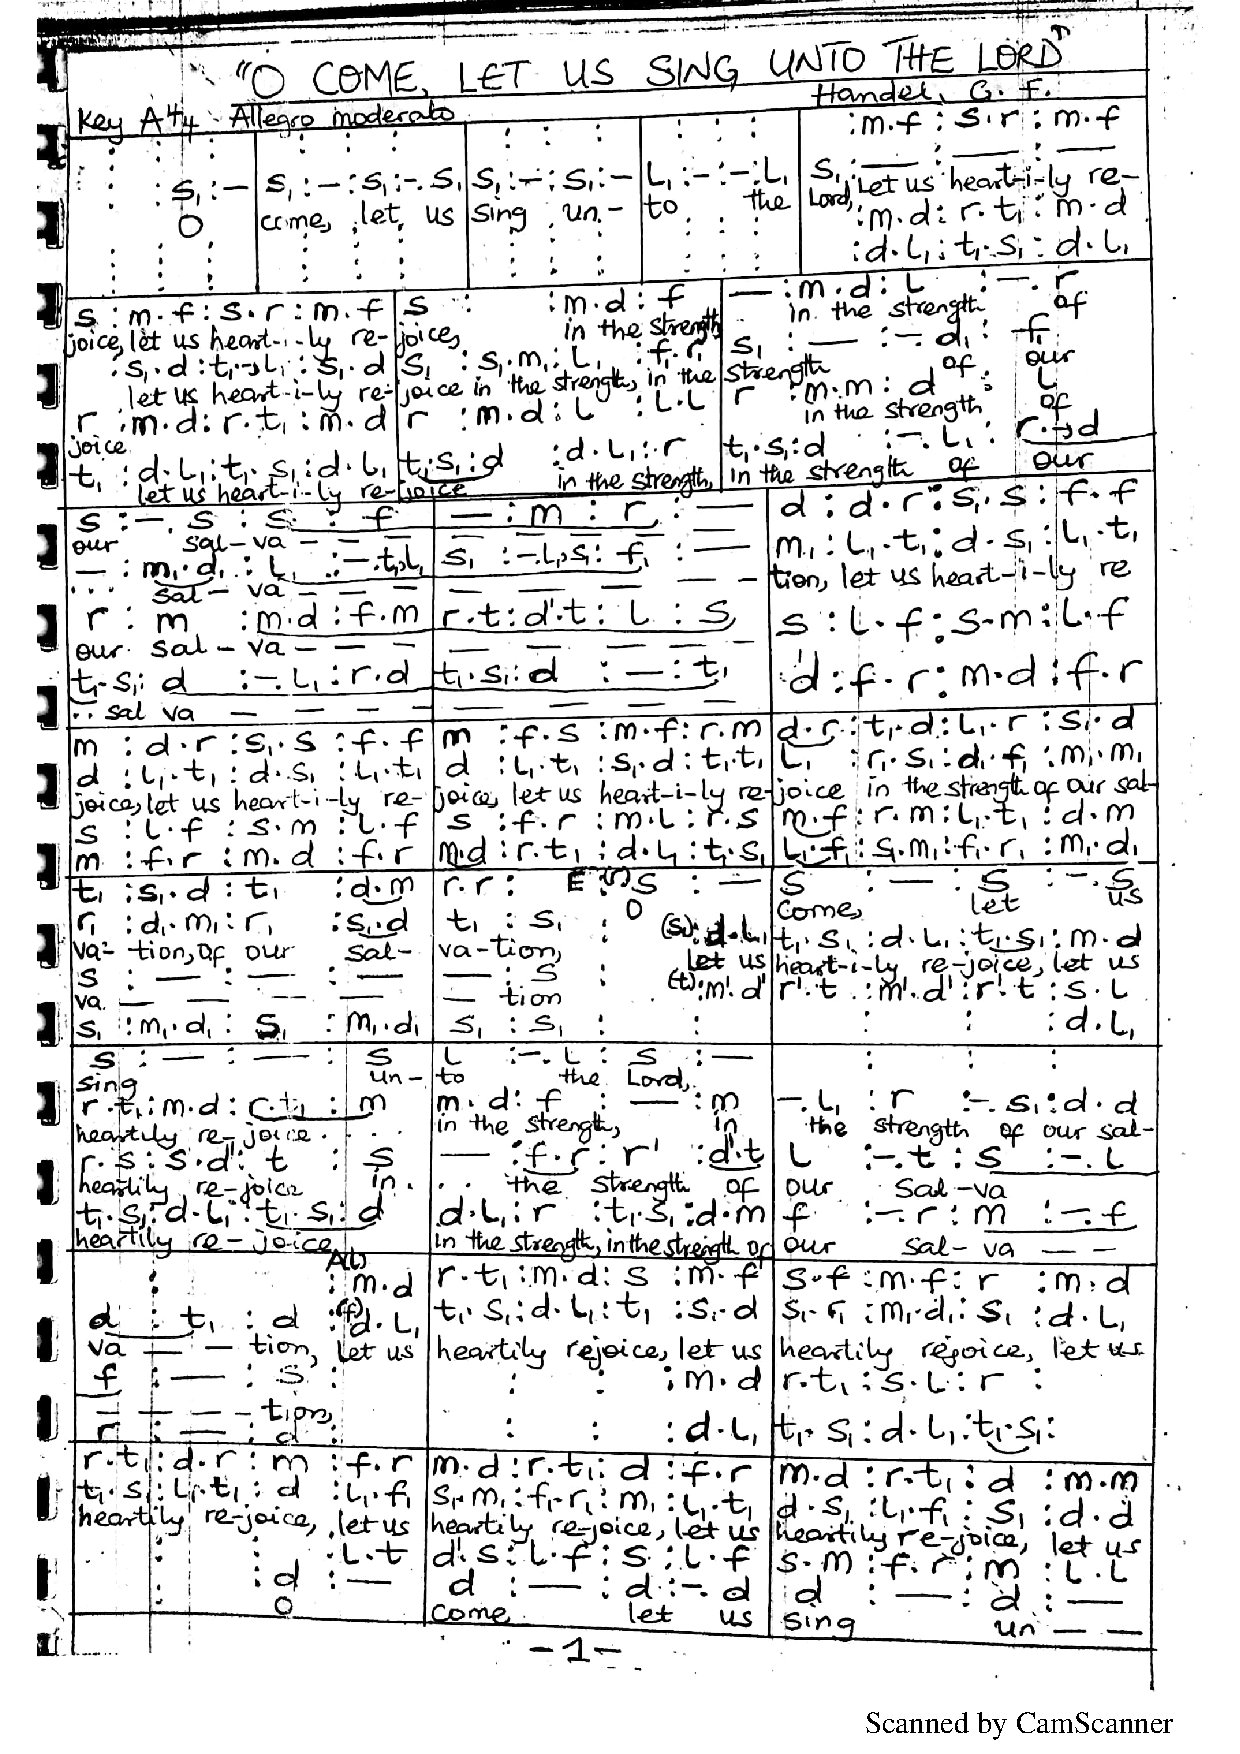 "O COME, LET US SING UNTO THE LORD"
Handel, G. F.
Key A 4/4 Allegro moderato
: m.f : s.r : m.f
s₁ : — s₁ : — : s₁ : -. s₁ s₁ : — : s₁ : — l₁ : — : -. l₁ s₁ : — : — : —
O come, let us sing un - to the Lord, Let us heart-i-ly re-
: m.d : r.t₁ : m.d
: d.l₁ : t₁.s₁ : d.l₁
s : m.f : s.r : m.f s : : m.d : f — : m.d : l : -. r
joice, let us heart-i-ly re- joice, in the strength in the strength of
: s₁.d : t₁.l₁ : s₁.d s₁ : s₁.m₁ : l₁ : f₁.r₁ s₁ : — : -. d₁ : f₁
let us heart-i-ly re- joice in the strength, in the strength of our
r : m.d : r.t₁ : m.d r : m.d : l : l.l r : m.m : d : l
joice in the strength of
t₁ : d.l₁ : t₁.s₁ : d.l₁ t₁.s₁ : d : d.l₁ : r t₁.s₁ : d : -. l₁ : r.d
let us heart-i-ly re- joice in the strength, in the strength of our
s : -. s : s : f — : m : r : — d : d.r : s₁.s : f.f
our sal - va — — —
— : m₁.d₁ : l₁ : -. t₁l₁ s₁ : -. l₁s₁ : f₁ : — m₁ : l₁.t₁ : d.s₁ : l₁.t₁
sal - va — — — tion, let us heart-i-ly re
r : m : m.d : f.m r.t : d'.t : l : s s : l.f : s.m : l.f
our sal - va — — —
t₁.s₁ : d : -. l₁ : r.d t₁.s₁ : d : — : t₁ d : f.r : m.d : f.r
sal va — — —
m : d.r : s₁.s : f.f m : f.s : m.f : r.m d.r : t₁.d : l₁.r : s₁.d
d : l₁.t₁ : d.s₁ : l₁.t₁ d : l₁.t₁ : s₁.d : t₁.t₁ l₁ : r₁.s₁ : d₁.f₁ : m₁.m₁
joice, let us heart-i-ly re- joice, let us heart-i-ly re- joice in the strength of our sal-
s : l.f : s.m : l.f s : f.r : m.l : r.s m.f : r.m : l₁.t₁ : d.m
m : f.r : m.d : f.r m.d : r.t₁ : d.l₁ : t₁.s₁ l₁.f₁ : s₁.m₁ : f₁.r₁ : m₁.d₁
t₁ : s₁.d : t₁ : d.m r.r : s : — s : — : s : -. s
O Come, let us
r₁ : d₁.m₁ : r₁ : s₁.d t₁ : s₁ : (s₁) : d.l₁ t₁.s₁ : d.l₁ : t₁.s₁ : m.d
va- tion, of our sal- va-tion, let us heart-i-ly re-joice, let us
s : — : — : — — : s : (t) : m'.d' r'.t : m'.d' : r'.t : s.l
va — — — — tion
s₁ : m₁.d₁ : s₁ : m₁.d₁ s₁ : s₁ : : : d.l₁
s : — : — : s l : -. l : s : —
sing un- to the Lord,
r.t₁ : m.d : r.t₁ : m m.d : f : — : m -. l₁ : r : -. s₁ : d.d
heartily re-joice in the strength, in the strength of our sal-
r.s : s.d' : t : s — : f.r : r' : d'.t l : -. t : s : -. l
heartily re-joice in the strength of our sal-va
t₁.s₁ : d.l₁ : t₁.s₁ : d d.l₁ : r : t₁.s₁ : d.m f : -. r : m : -. f
heartily re-joice in the strength, in the strength of our sal-va — —
: m.d r.t₁ : m.d : s : m.f s.f : m.f : r : m.d
d : t₁ : d : d.l₁ t₁.s₁ : d.l₁ : t₁ : s₁.d s₁.r₁ : m₁.d₁ : s₁ : d.l₁
va — — tion, let us heartily rejoice, let us heartily rejoice, let us
f : — : s : : : : m.d r.t₁ : s.l : r :
— — — tion,
r : — : d : : : d.l₁ t₁.s₁ : d.l₁ : t₁.s₁ :
r.t₁ : d.r : m : f.r m.d : r.t₁ : d : f.r m.d : r.t₁ : d : m.m
t₁.s₁ : l₁.t₁ : d : l₁.f₁ s₁.m₁ : f₁.r₁ : m₁ : l₁.t₁ d.s₁ : l₁.f₁ : s₁ : d.d
heartily re-joice, let us heartily re-joice, let us heartily re-joice, let us
: l.t d'.s : l.f : s : l.f s.m : f.r : m : l.l
: d : — d : — : d : -. d d : — : d : —
O come let us sing un — —
-1-
Scanned by CamScanner